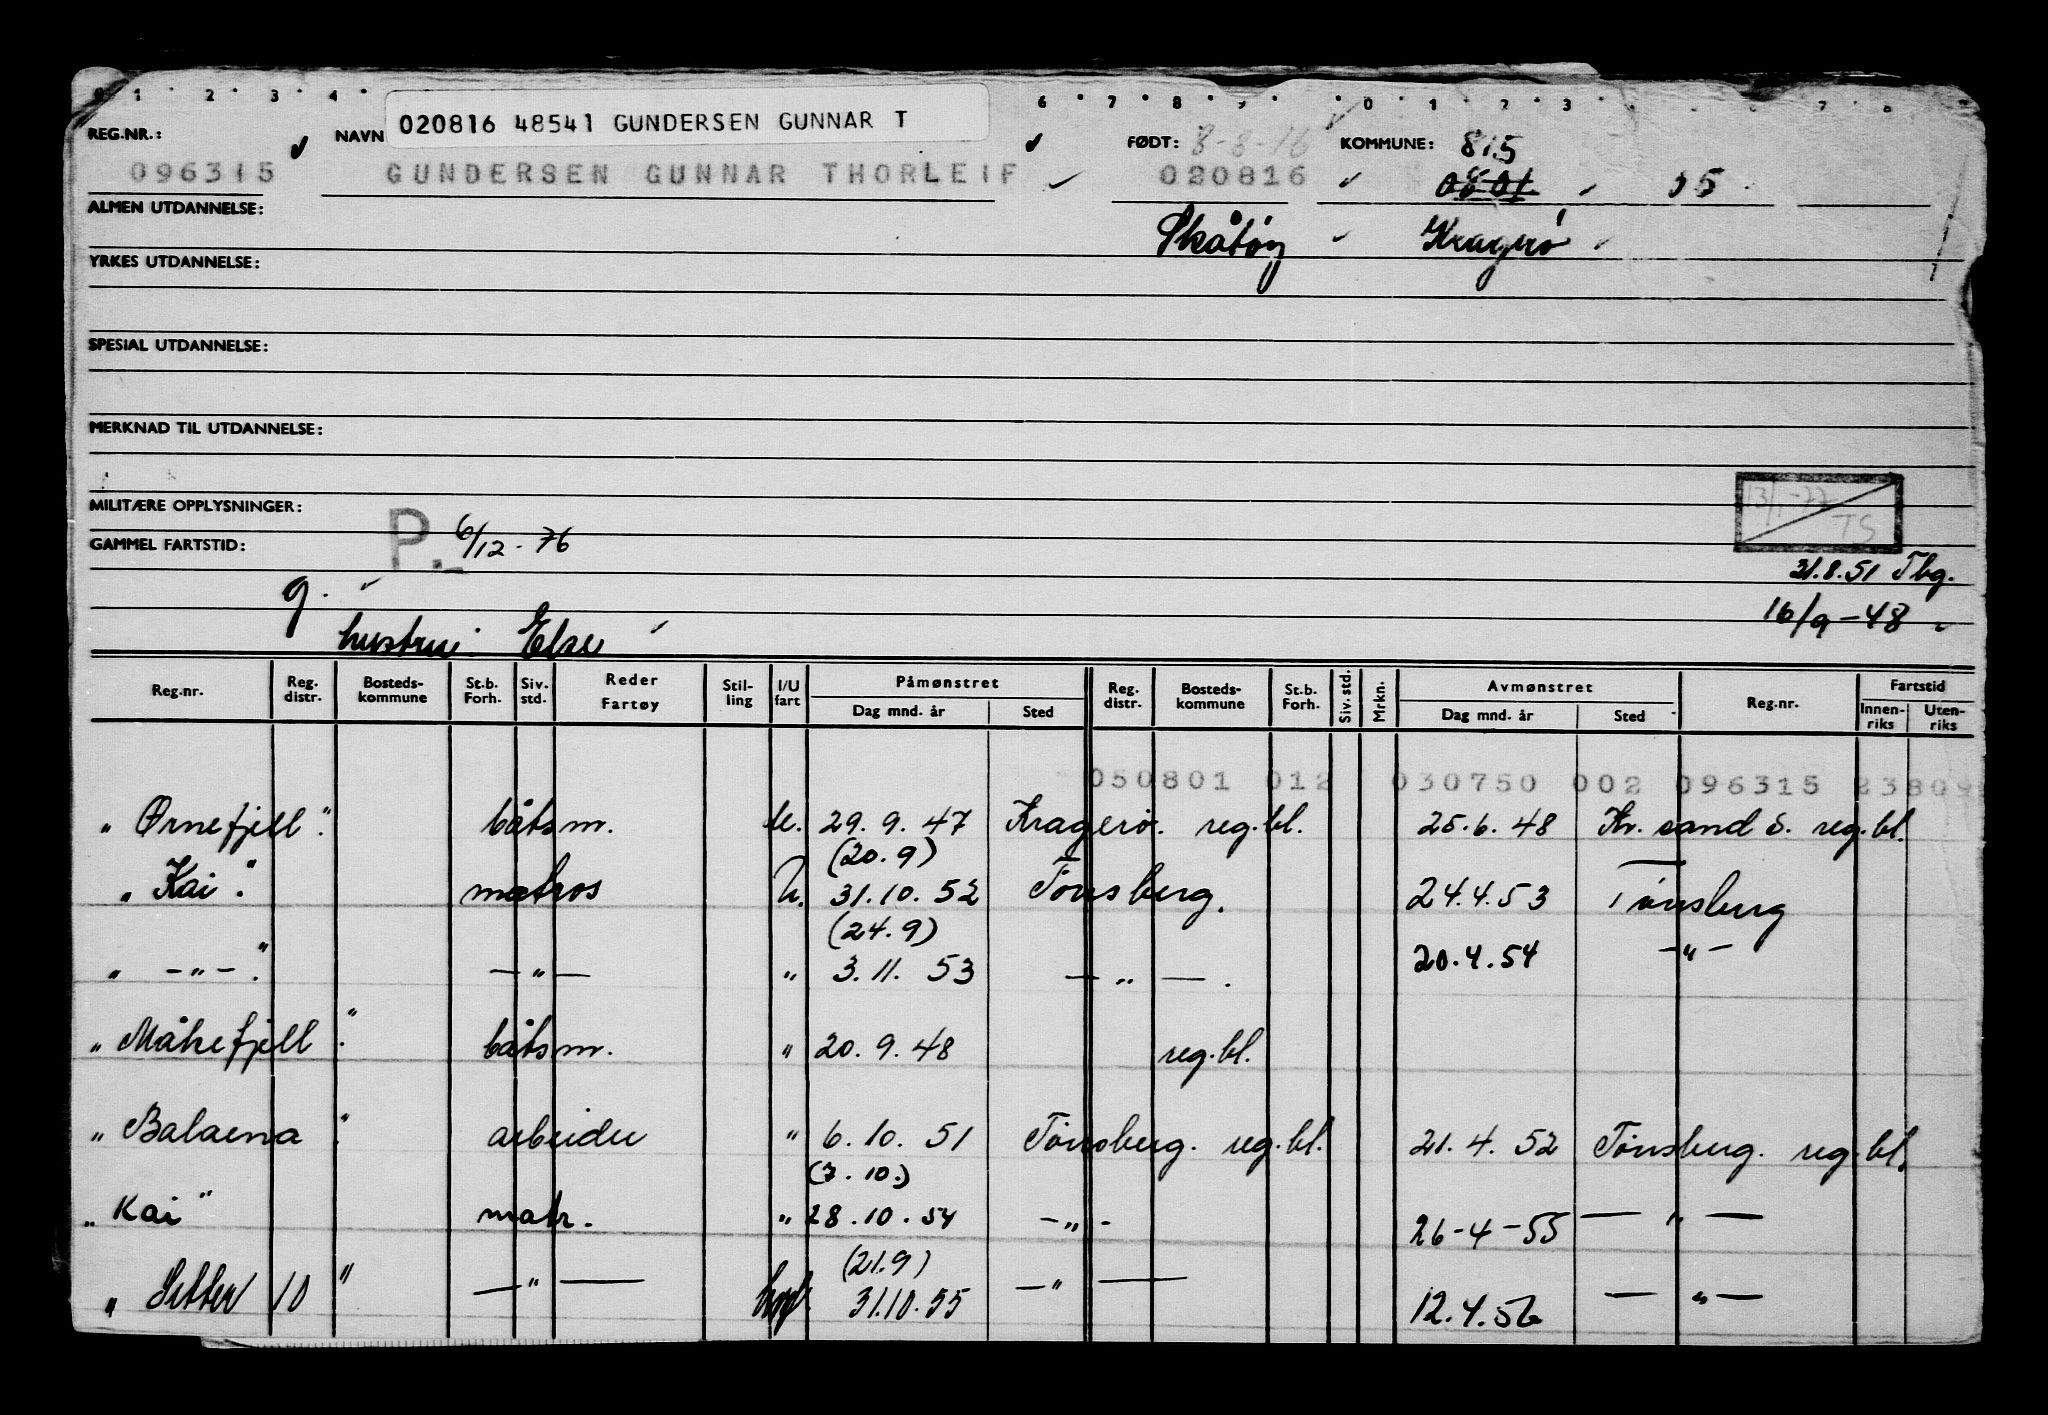 0 1 2 3 4 6 7 8 9 0 1 2 3 7 8
020816 48541 GUNDERSEN GUNNAR T
REG.NR.: NAVN FØDT: 8-8-16 KOMMUNE: 815
096315 GUNDERSEN GUNNAR THORLEIF 020816 0801 05
ALMEN UTDANNELSE: Skåtøy Kragerø
YRKES UTDANNELSE:
SPESIAL UTDANNELSE:
MERKNAD TIL UTDANNELSE:
MILITÆRE OPPLYSNINGER: 13/1-77
P. 6/12-76 TS
GAMMEL FARTSTID:
31.8.51 Tbg.
g. 16/9-48
hustru: Else
Reg.nr. Reg. distr. Bosteds- kommune St.b. Forh. Siv. std. Reder Fartøy Stil- ling I/U fart Påmønstret Dag mnd. år Sted Reg. distr. Bosteds- kommune St.b. Forh. Siv. std. Mrkn. Avmønstret Dag mnd. år Sted Reg.nr. Fartstid Innen- riks Uten- riks
050801 012 030750 002 096315 23809
"Ørnefjell". båtsm. U. 29.9.47 Kragerø. reg.bl. 25.6.48 Kr.sand S. reg.bl.
(20.9)
"Kai". matros U. 31.10.52 Tønsberg. 24.4.53 Tønsberg
(24.9)
" -"- ". -"- " 3.11.53 -"-. 20.4.54 -"-
"Måkefjell". båtsm. " 20.9.48 reg.bl.
"Balaena". arbeider " 6.10.51 Tønsberg. reg.bl. 21.4.52 Tønsberg. reg.bl.
(7.10.)
"Kai" matr. " 28.10.54 -"- 26-4-55 -"-
(21.9)
"Setter 10" -"- hvf. 31.10.55 -"- 12.4.56 -"-